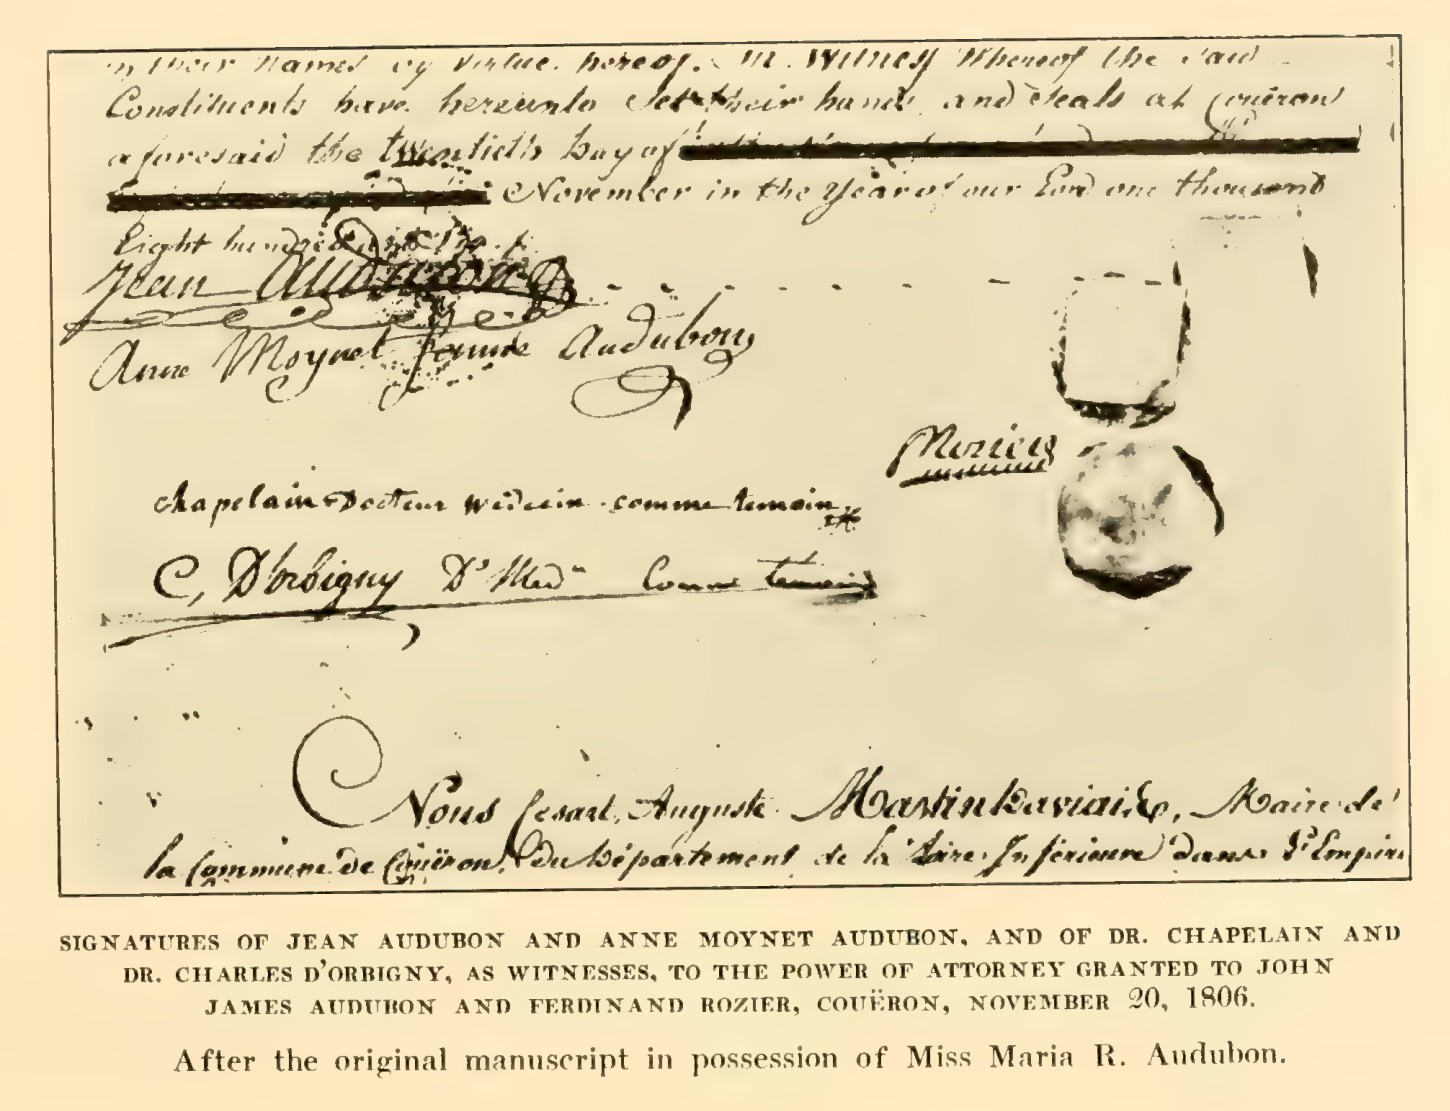 in their names by virtue hereof. In Witness Whereof the said
Constituents have hereunto Set their hands and Seals at Couëron
aforesaid the twentieth Day of
November in the Year of our Lord one thousand
Eight hundred and
Jean Audubon
Anne Moynet femme Audubon
chapelain Docteur médecin comme temoin
C, D'orbigny Dr Medn Comme temoin
Nous Cesart, Auguste Martin Daviais, Maire de
la Commune de Couëron, Du Département de la Loire Inférieure dans l'Empire
SIGNATURES OF JEAN AUDUBON AND ANNE MOYNET AUDUBON, AND OF DR. CHAPELAIN AND
DR. CHARLES D'ORBIGNY, AS WITNESSES, TO THE POWER OF ATTORNEY GRANTED TO JOHN
JAMES AUDUBON AND FERDINAND ROZIER, COUËRON, NOVEMBER 20, 1806.
After the original manuscript in possession of Miss Maria R. Audubon.